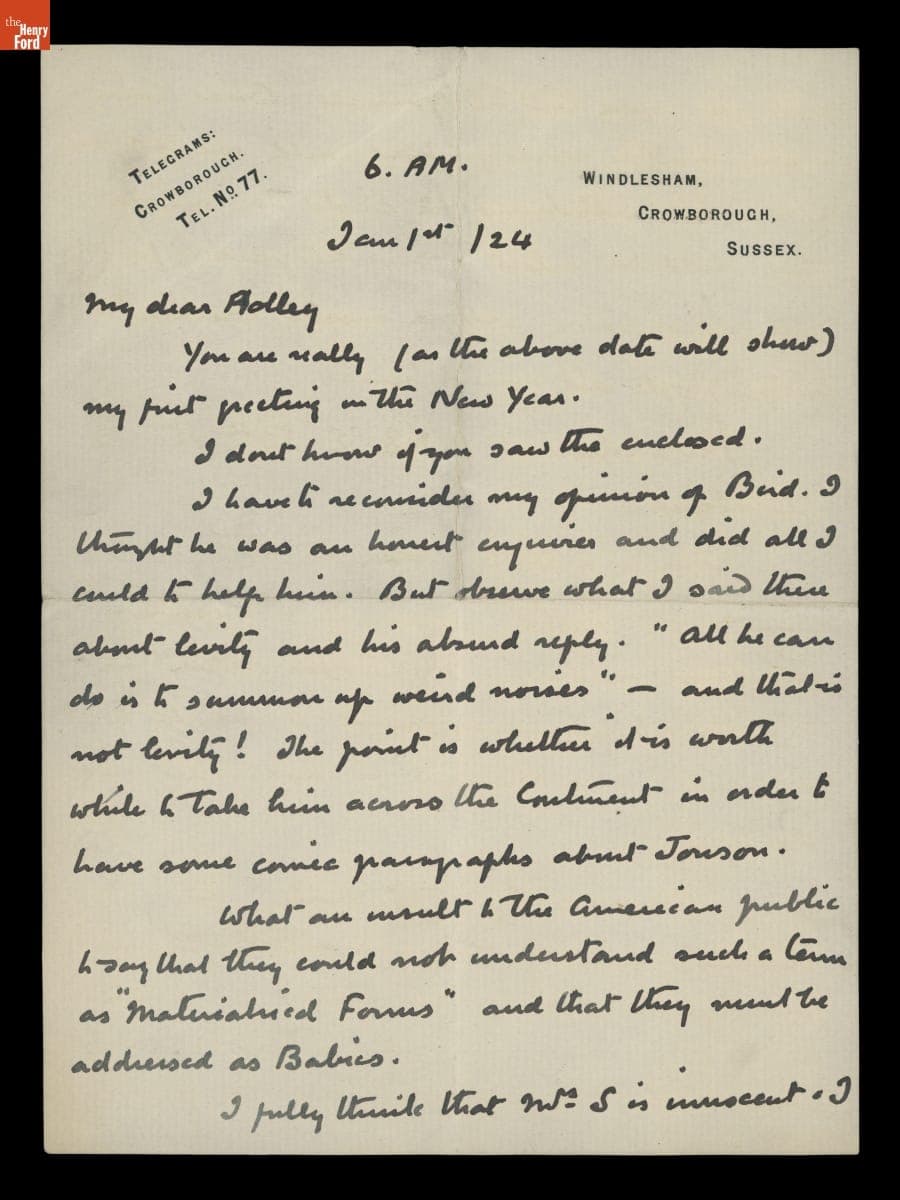 the
Henry
Ford
TELEGRAMS:
CROWBOROUGH.
TEL. No. 77.
WINDLESHAM,
CROWBOROUGH,
SUSSEX.
6. AM.
Jan 1st /24
My dear Adley
You are really (as the above date will show)
my first greeting in the New Year.
I dont know if you saw the enclosed.
I have to reconsider my opinion of Bird. I
thought he was an honest enquirer and did all I
could to help him. But observe what I said there
about levity and his absurd reply. "All he can
do is to summon up weird noises" — and that is
not levity! The point is whether it is worth
while to take him across the Continent in order to
have some comic paragraphs about Jonson.
What an insult to the American public
to say that they could not understand such a term
as "Materialised Forms" and that they must be
addressed as Babies.
I fully think that Mrs S is innocent. I